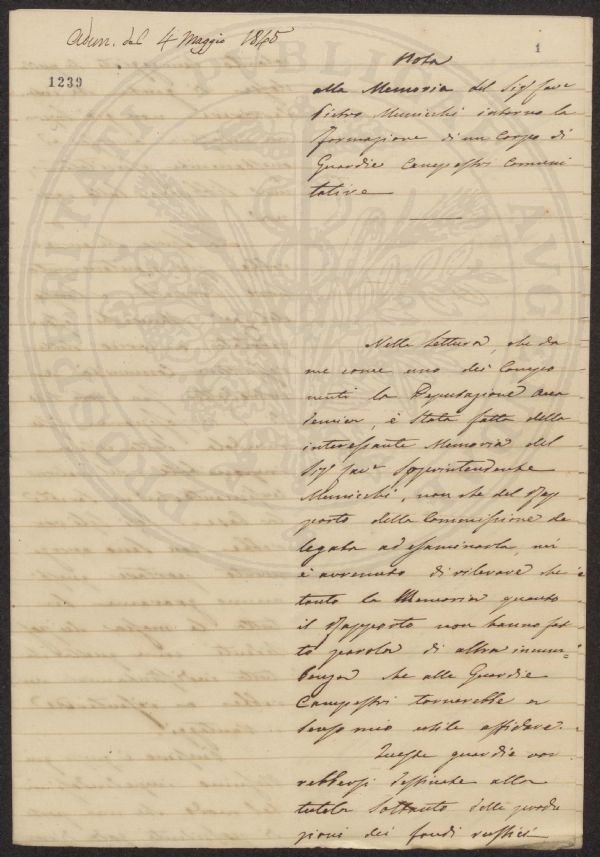 Adun. del 4 Maggio 1845
1
1239
Nota
alla Memoria del Sigr Cave
Pietro Municchi intorno la
formazione di un Corpo di
Guardie Campestri Comuni
tative
Nella lettura, che da
me come uno dei Compo
nenti la Deputazione acca
demica, è stata fatta della
interessante Memoria del
Sigr Cavr Soprintendente
Municchi, non che del Rap
porto della Commissione de
legata ad esaminarla, mi
è avvenuto di rilevare che
tanto la Memoria quanto
il Rapporto non hanno fat
to parola di altra incum=
benza che alle Guardie
Campestri tornerebbe a
senso mio utile affidare.
Queste guardie vor
rebbersi destinate alla
tutela soltanto delle produ
zioni dei fondi rustici
PROSPERITATI PUBLICAE AUGENDAE